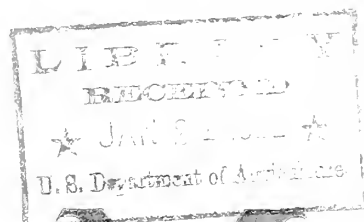 LIBRARY
RECEIVED
★ JAN ★
U. S. Department of Agriculture